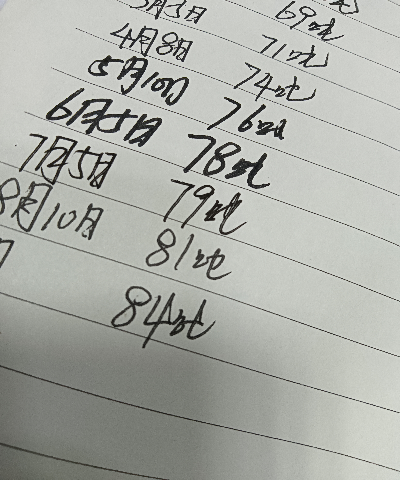 69吨
月5日 71吨
4月8日 74吨
5月10日 76吨
6月5日 78吨
7月5日 79吨
8月10日 81吨
84吨